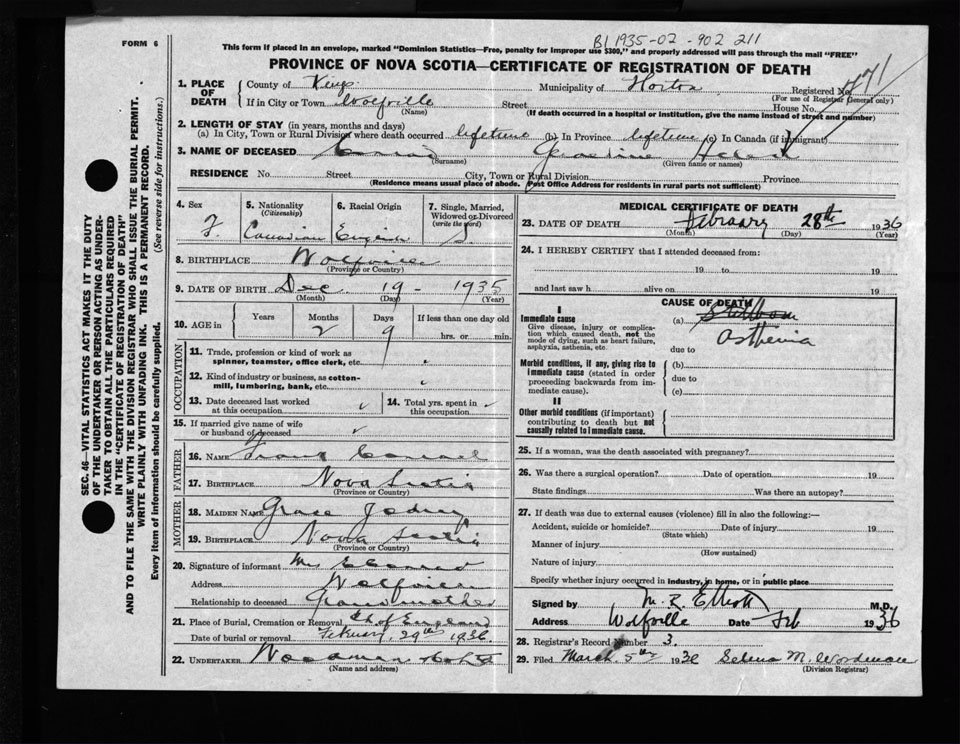 FORM 6
This form if placed in an envelope, marked "Dominion Statistics—Free, penalty for improper use $300," and properly addressed will pass through the mail "FREE"
B1 1935-02-902 211
PROVINCE OF NOVA SCOTIA—CERTIFICATE OF REGISTRATION OF DEATH
SEC. 46—VITAL STATISTICS ACT MAKES IT THE DUTY
OF THE UNDERTAKER OR PERSON ACTING AS UNDER-
TAKER TO OBTAIN ALL THE PARTICULARS REQUIRED
IN THE "CERTIFICATE OF REGISTRATION OF DEATH"
AND TO FILE THE SAME WITH THE DIVISION REGISTRAR WHO SHALL ISSUE THE BURIAL PERMIT.
WRITE PLAINLY WITH UNFADING INK. THIS IS A PERMANENT RECORD.
Every item of information should be carefully supplied. (See reverse side for instructions.)
1. PLACE OF DEATH County of Kings Municipality of Horton Registered No.
(For use of Registrar General only)
If in City or Town Wolfville Street House No.
(Name) (If death occurred in a hospital or institution, give the name instead of street and number)
2. LENGTH OF STAY (in years, months and days)
(a) In City, Town or Rural Division where death occurred lifetime (b) In Province lifetime (c) In Canada (if immigrant)
3. NAME OF DECEASED Conrad
(Surname) (Given name or names)
RESIDENCE No. Street City, Town or Rural Division Province
(Residence means usual place of abode. Post Office Address for residents in rural parts not sufficient)
4. Sex 5. Nationality (Citizenship) 6. Racial Origin 7. Single, Married, Widowed or Divorced (write the word)
F. Canadian English S.
8. BIRTHPLACE Wolfville
(Province or Country)
9. DATE OF BIRTH Dec 19 - 1935
(Month) (Day) (Year)
10. AGE in Years Months Days If less than one day old
2 9 hrs. or min.
OCCUPATION
11. Trade, profession or kind of work as spinner, teamster, office clerk, etc.
12. Kind of industry or business, as cotton-mill, lumbering, bank, etc.
13. Date deceased last worked at this occupation 14. Total yrs. spent in this occupation
15. If married give name of wife or husband of deceased
FATHER
16. NAME Frank Conrad
17. BIRTHPLACE Nova Scotia
(Province or Country)
MOTHER
18. MAIDEN NAME Grace
19. BIRTHPLACE Nova Scotia
(Province or Country)
20. Signature of informant Mrs Conrad
Address Wolfville
Relationship to deceased Grandmother
21. Place of Burial, Cremation or Removal Ch of England
Date of burial or removal February 29th 1936
22. UNDERTAKER Woodman
(Name and address)
MEDICAL CERTIFICATE OF DEATH
23. DATE OF DEATH February 28th 1936
(Month) (Day) (Year)
24. I HEREBY CERTIFY that I attended deceased from:
19 to 19
and last saw h alive on 19
CAUSE OF DEATH
I
Immediate cause
Give disease, injury or complication which caused death, not the mode of dying, such as heart failure, asphyxia, asthenia, etc.
(a) Stillborn
Asthenia
due to
Morbid conditions, if any, giving rise to immediate cause (stated in order proceeding backwards from immediate cause).
(b)
due to
(c)
II
Other morbid conditions (if important) contributing to death but not causally related to immediate cause.
25. If a woman, was the death associated with pregnancy?
26. Was there a surgical operation? Date of operation 19
State findings Was there an autopsy?
27. If death was due to external causes (violence) fill in also the following:—
Accident, suicide or homicide? Date of injury 19
(State which)
Manner of injury
(How sustained)
Nature of injury
Specify whether injury occurred in industry, in home, or in public place
Signed by M. R. Elliott M.D.
Address Wolfville Date Feb 1936
28. Registrar's Record Number 3.
29. Filed March 5th 1936 Selena M. Woodman
(Division Registrar)